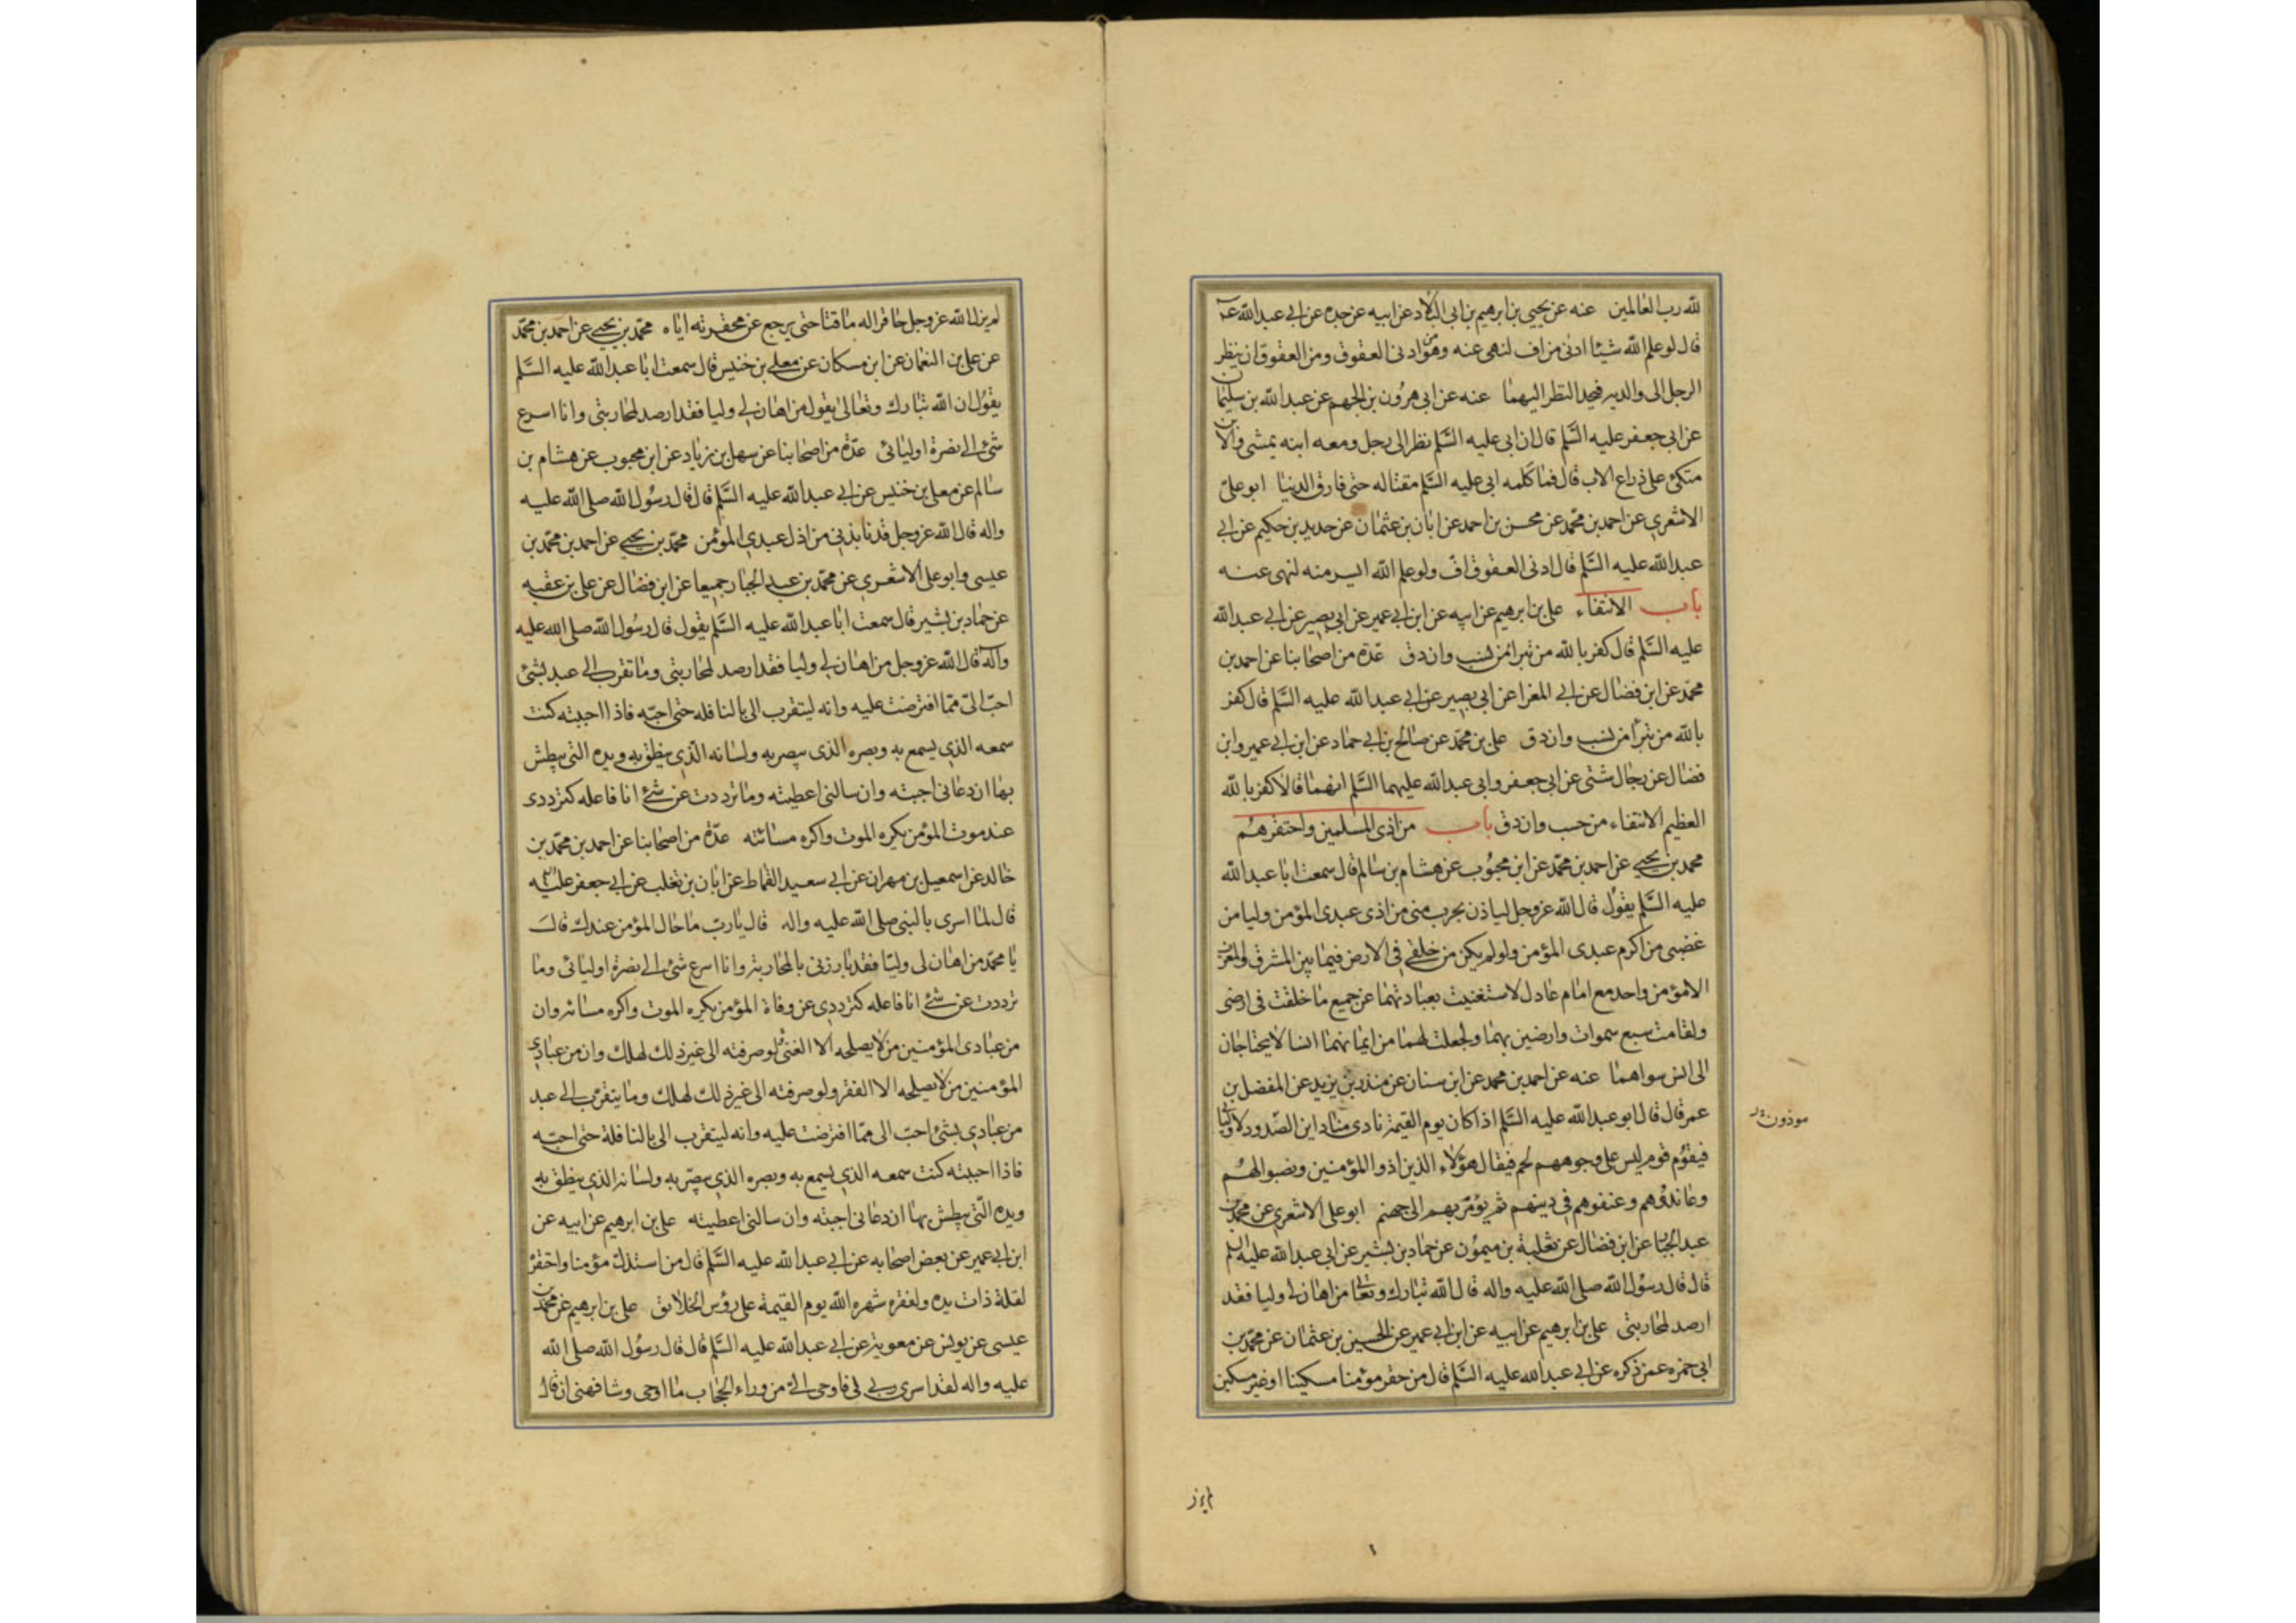 لله رب العالمين عنه عن يحيى بن ابرهيم بن ابى البلاد عن ابيه عن جده عن ابي عبد الله عـ
قال لو علم الله شيئا ادنى من اف لنهى عنه وهو من ادنى العقوق ومن العقوق ان ينظر
الرجل الى والديه فيحد النظر اليهما عنه عن ابى هرون بن الجهم عن عبد الله بن سليمان
عن ابى جعفر عليه السّلم قال ان ابى عليه السّلم نظر الى رجل ومعه ابنه يمشى والابن
متكئ على ذراع الاب قال فما كلمه ابى عليه السّلم مقتا له حتى فارق الدنيا ابو علىّ
الاشعرى عن احمد بن محمّد عن محسن بن احمد عن ابان بن عثمان عن حديد بن حكيم عن ابي
عبد الله عليه السَّلم قال ادنى العقوق افّ ولو علم الله ايسر منه لنهى عنه
باب الانتفاء على بن ابرهيم عن ابيه عن ابن ابي عمير عن ابي بصير عن ابي عبد الله
عليه السَّلم قال كفر بالله من تبرا من نسب وان دق عدّة من اصحابنا عن احمد بن
محمّد عن ابن فضال عن ابي المغرا عن ابى بصير عن ابي عبد الله عليه السَّلم قال كفر
بالله من تبرأ من نسب وان دق على بن محمّد عن صالح بن ابي حماد عن ابن ابي عمير وابن
فضال عن رجال شتى عن ابى جعفر وابى عبد الله عليهما السَّلم انهما قالا كفر بالله
العظيم الانتفاء من حسب وان دق باب من اذى المسلمين واحتقرهم
محمد بن يحيى عن احمد بن محمّد عن ابن محبُوب عن هشام بن سالم قال سمعت ابا عبد الله
عليه السَّلم يقول قال الله عز وجل لياذن بحرب منى من اذى عبدى المؤمن وليامن
غضبى من اكرم عبدى المؤمن ولو لم يكن من خلقي فى الارض فيما بين المشرق والمغرب
الا مؤمن واحد مع امام عادل لاستغنيت بعبادتهما عن جميع ما خلقت فى ارضى
ولقامت سبع سموات وارضين بهما ولجعلت لهما من ايمانهما انسا لا يحتاجان
الى انس سواهما عنه عن احمد بن محمد عن ابن سنان عن منذر بن يزيد عن المفضل بن
عمر قال قال ابو عبد الله عليه السَّلم اذا كان يوم القيمة نادى مناد اين الصّدود لاوليائى
موذون
فيقوم قوم ليس على وجوههم لحم فيقال هؤلاء الذين اذوا المؤمنين ونصبوا لهُم
وعاندُوهم وعنفوهم فى دينهم ثم يؤمر بهم الى جهنم ابو على الاشعرى عن محمد بن
عبد الجبار عن ابن فضال عن ثعلبة بن ميمون عن حماد بن بشير عن ابى عبد الله عليه السلم
قال قال رسُول الله صلى الله عليه واله قال الله تبارك وتعالى من اهان لى وليا فقد
ارصد لمحاربتى على بن ابرهيم عن ابيه عن ابن ابي عمير عن الحسين بن عثمان عن محمّد بن
ابى حمزه عمن ذكره عن ابي عبد الله عليه السَّلم قال من حقر مؤمنا مسكينا او غير مسكين
لم يزل
لم يزل الله عز وجل حاقرا له ماقتا حتى يرجع عن محقرته اياه محمّد بن يحيي عن احمد بن محمّد
عن على بن النعمان عن ابن مسكان عن معلى بن خنيس قال سمعت ابا عبد الله عليه السَّلم
يقوُل ان الله تبارك وتعالى يقول من اهان لي وليا فقد ارصد لمحاربتى وانا اسرع
شئ الى نصرة اوليائى عدّة من اصحابنا عن سهل بن زياد عن ابن محبوب عن هشام بن
سالم عن معلى بن خنيس عن ابي عبد الله عليه السَّلم قال قال رسُول الله صلى الله عليه
واله قال الله عز وجل قد نابذنى من اذل عبدى المؤمن محمّد بن يحيي عن احمد بن محمّد بن
عيسى وابو على الاشعرى عن محمّد بن عبد الجبار جميعا عن ابن فضال عن على بن عقبه
عن حماد بن بشير قال سمعت ابا عبد الله عليه السَّلم يقول قال رسُول الله صلى الله عليه
واله قال الله عز وجل من اهان لي وليا فقد ارصد لمحاربتى وما تقرب الى عبد بشئ
احبّ الىّ ممّا افترضت عليه وانه ليتقرب الى بالنافله حتى احبّه فاذا احببته كنت
سمعه الذي يسمع به وبصره الذى يبصر به ولسانه الّذي ينطق به ويده التى يبطش
بها ان دعانى اجبته وان سالنى اعطيته وما ترددت عن شئ انا فاعله كترددى
عند موت المؤمن يكره الموت واكره مسائته عدّة من اصحابنا عن احمد بن محمّد بن
خالد عن اسمعيل بن مهران عن ابي سعيد القماط عن ابان بن تغلب عن ابي جعفر عليه
قال لما اسرى بالنبى صلى الله عليه واله قال يا ربّ ما حال المؤمن عندك قال
يا محمّد من اهان لى وليّا فقد بارزنى بالمحاربة وانا اسرع شئ الى نصرة اوليائى وما
ترددت عن شئ انا فاعله كترددى عن وفاة المؤمن يكره الموت واكره مسائته وان
من عبادى المؤمنين من لا يصلحه الا الغنى ولو صرفته الى غير ذلك لهلك وان من عبادي
المؤمنين من لا يصلحه الا الفقر ولو صرفته الى غير ذلك لهلك وما يتقرّب الى عبد
من عبادي بشئ احبّ الى ممّا افترضت عليه وانه ليتقرب الى بالنافلة حتى احبّه
فاذا احببته كنت سمعه الذي يسمع به وبصره الذي يبصر به ولسانه الذي ينطق به
ويده الّتى يبطش بها ان دعانى اجبته وان سالنى اعطيته على بن ابرهيم عن ابيه عن
ابن ابي عمير عن بعض اصحابه عن ابي عبد الله عليه السَّلم قال من استذل مؤمنا واحتقره
لقلة ذات يده ولفقره شهره الله يوم القيمة على رؤس الخلائق على بن ابرهيم عن محمد بن
عيسى عن يونس عن معوية عن ابي عبد الله عليه السَّلم قال قال رسُول الله صلى الله
عليه واله لقد اسرى ربي بي فاوحى الىّ من وراء الحجاب ما اوحى وشافهنى ان قال